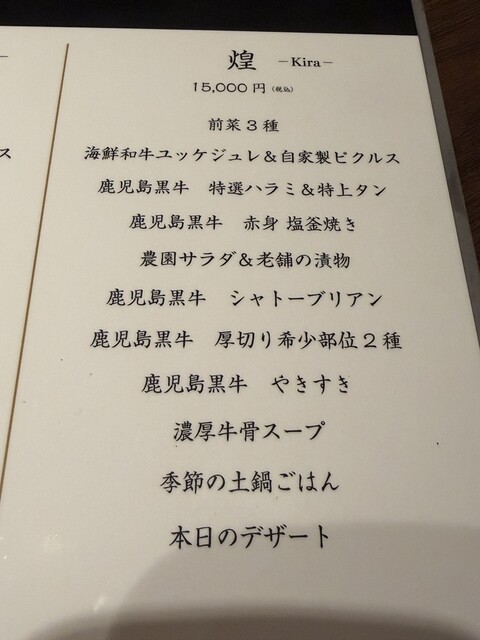 煌 －Kira－
15,000 円 (税込)
前菜３種
海鮮和牛ユッケジュレ＆自家製ピクルス
鹿児島黒牛　特選ハラミ＆特上タン
鹿児島黒牛　赤身 塩釜焼き
農園サラダ＆老舗の漬物
鹿児島黒牛　シャトーブリアン
鹿児島黒牛　厚切り希少部位２種
鹿児島黒牛　やきすき
濃厚牛骨スープ
季節の土鍋ごはん
本日のデザート
ス